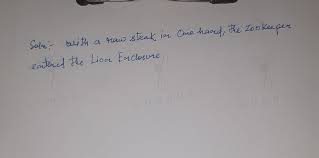 Soln:- With a raw steak in One hand, the zookeeper
entered the Lion Enclosure